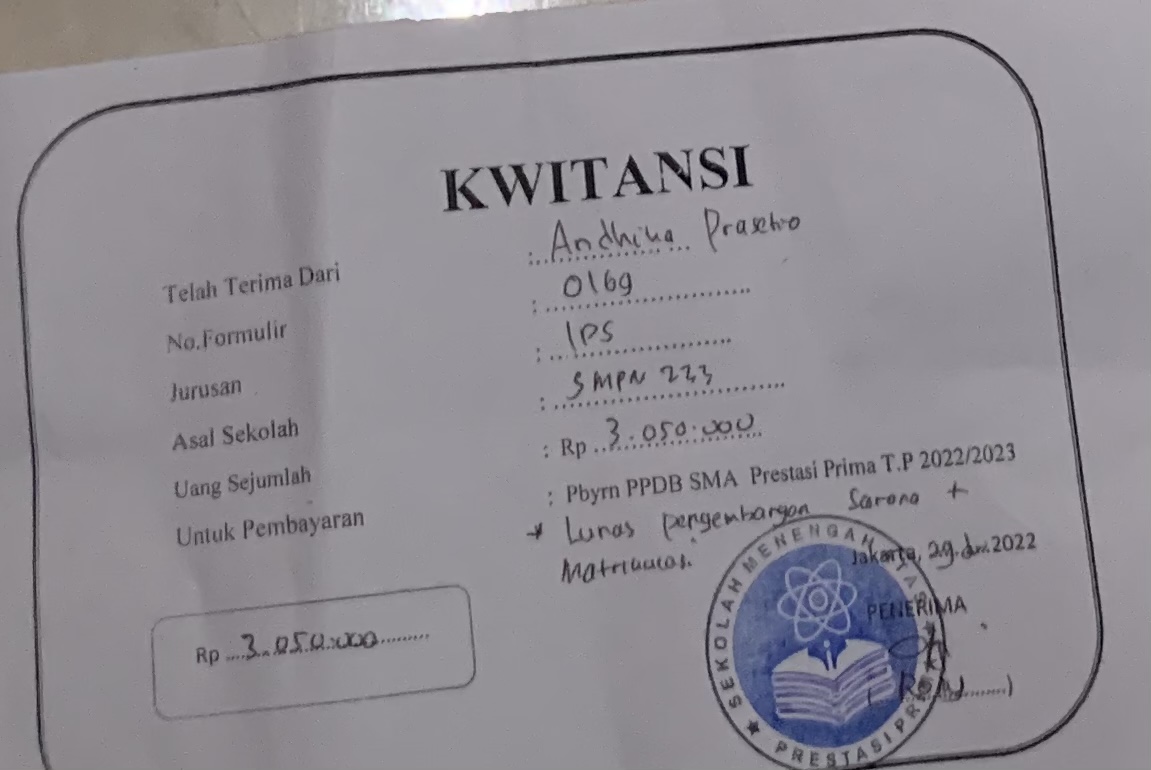 KWITANSI
Telah Terima Dari : Andhika Prasetio
No.Formulir : 0169
Jurusan : IPS
Asal Sekolah : SMPN 233
Uang Sejumlah : Rp 3.050.000
Untuk Pembayaran : Pbyrn PPDB SMA Prestasi Prima T.P 2022/2023
* Lunas pengembangan Sarana +
Matrikulasi.
Jakarta, 29 2022
PENERIMA
Rp 3.050.000
SEKOLAH MENENGAH
PRESTASI PRIMA